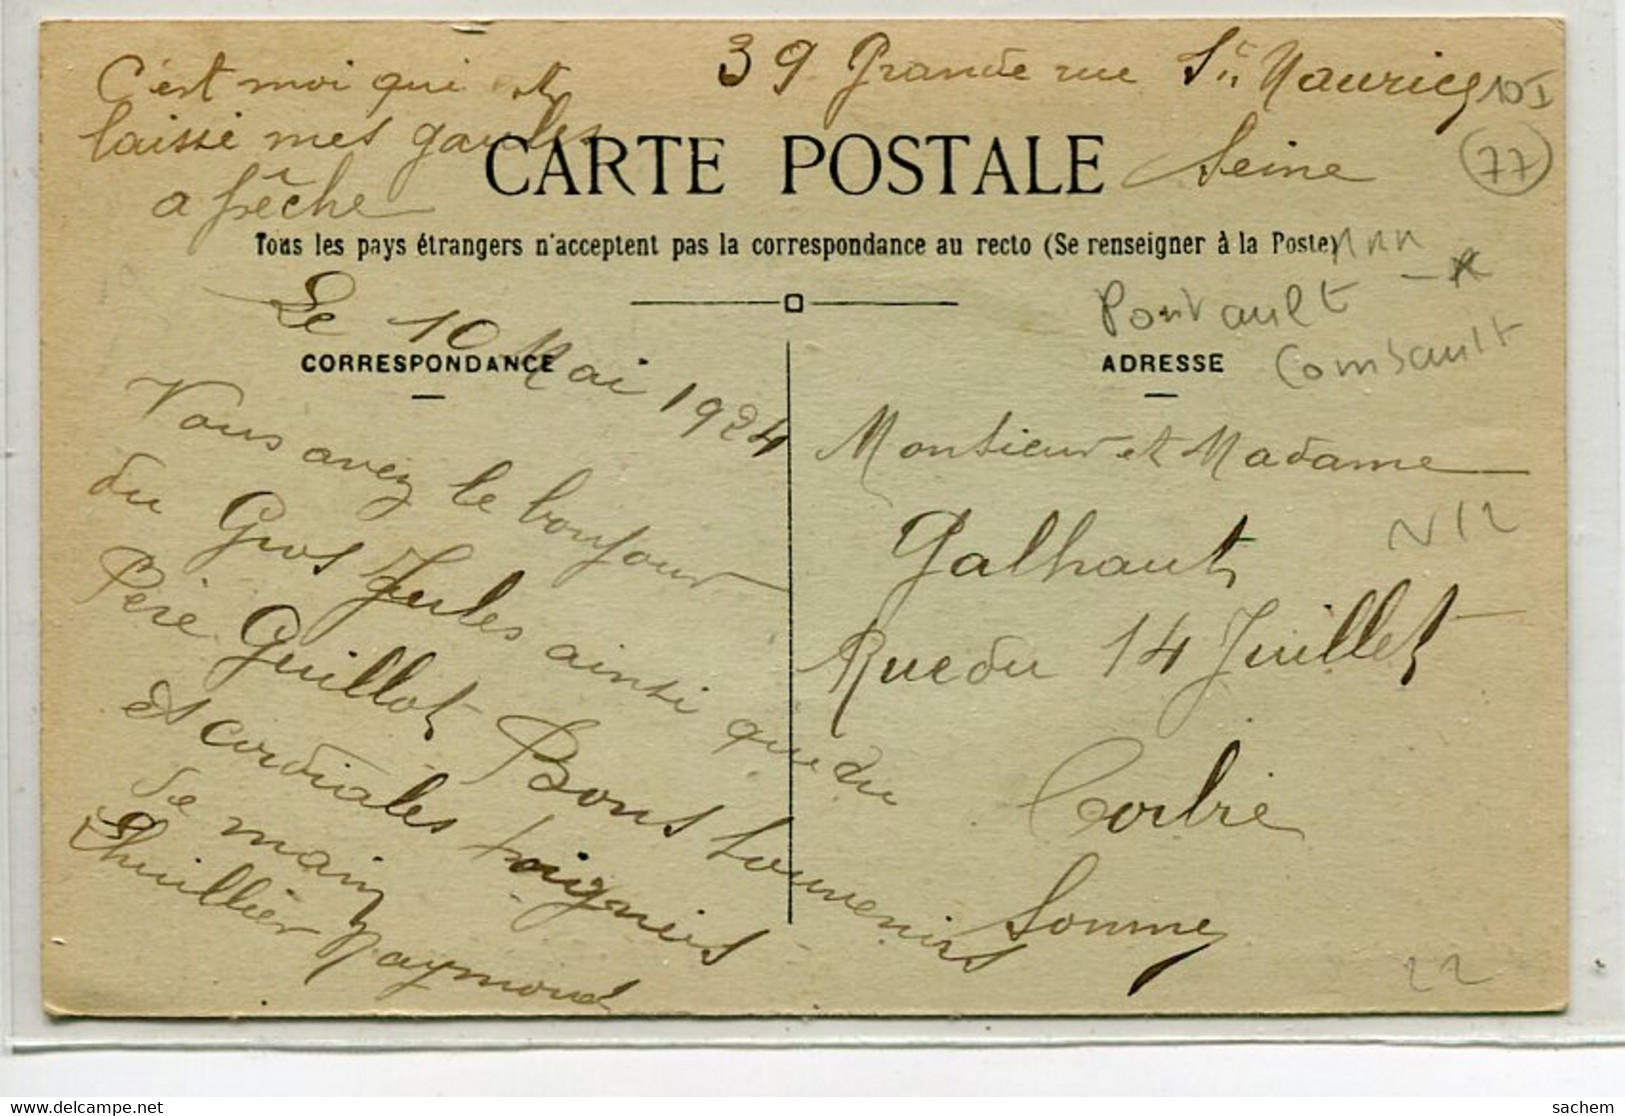 C'est moi qui et
laissé mes gaules
a pêche
39 Grande rue St Maurice
Seine
10I
77
CARTE POSTALE
Tous les pays étrangers n'acceptent pas la correspondance au recto (Se renseigner à la Poste)
Pontault
Combault
CORRESPONDANCE
ADRESSE
Le 10 Mai 1924
Vous avez le bonjour
du Gros Jules ainsi que du
Père Guillot Bons souvenirs
et cordiales poignées
de main
Lhuillier Raymond
Monsieur et Madame
Galhaut
Rue du 14 Juillet
Corbie
Somme
N12
22
delcampe.net
sachem